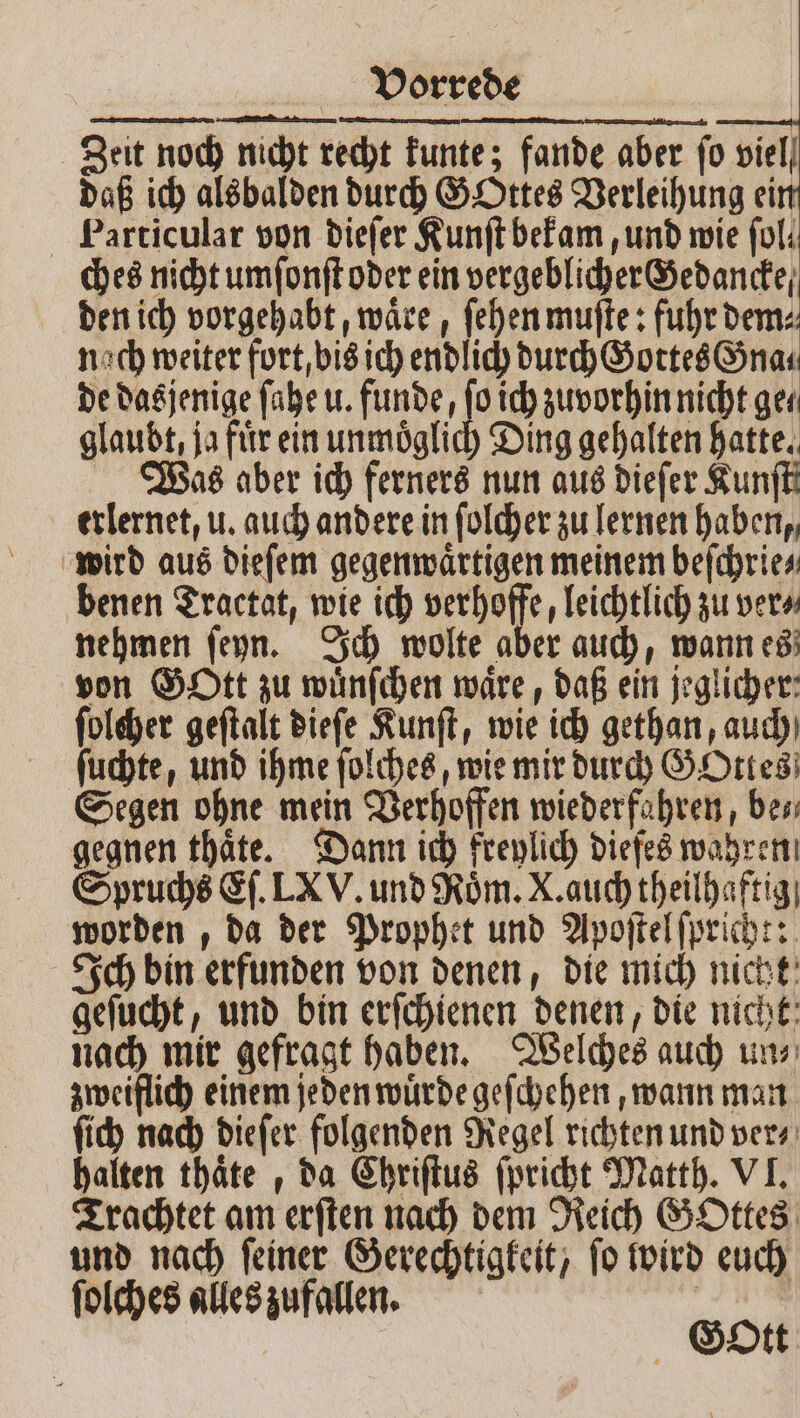 Vorrede
Zeit noch nicht recht kunte; fande aber ſo viel
daß ich alsbalden durch GOttes Verleihung ein
Particular von dieſer Kunſt bekam, und wie ſol⸗
ches nicht umſonſt oder ein vergeblicher Gedancke,
den ich vorgehabt, waͤre, ſehen muſte: fuhr dem⸗
nach weiter fort, bis ich endlich durch Gottes Gna⸗
de dasjenige ſahe u. funde, ſo ich zuvorhin nicht ge⸗
glaubt, ja fuͤr ein unmoͤglich Ding gehalten hatte.
Was aber ich ferners nun aus dieſer Kunſt
erlernet, u. auch andere in ſolcher zu lernen haben,
wird aus dieſem gegenwaͤrtigen meinem beſchrie⸗
benen Tractat, wie ich verhoffe, leichtlich zu ver⸗
nehmen ſeyn. Ich wolte aber auch, wann es
von GOtt zu wuͤnſchen waͤre, daß ein jeglicher
ſolcher geſtalt dieſe Kunſt, wie ich gethan, auch
ſuchte, und ihme ſolches, wie mir durch GOttes
Segen ohne mein Verhoffen wiederfahren, be⸗
gegnen thaͤte. Dann ich freylich dieſes wahren
Spruchs Eſ. LXV. und Roͤm. X. auch theilhaftig
worden, da der Prophet und Apoſtel ſpricht:
Ich bin erfunden von denen, die mich nicht
geſucht, und bin erſchienen denen, die nicht
nach mir gefragt haben. Welches auch un⸗
zweiflich einem jeden wuͤrde geſchehen, wann man
ſich nach dieſer folgenden Regel richten und ver⸗
halten thaͤte, da Chriſtus ſpricht Matth. VI.
Trachtet am erſten nach dem Reich GOttes
und nach ſeiner Gerechtigkeit, ſo wird euch
ſolches alles zufallen.
GOtt